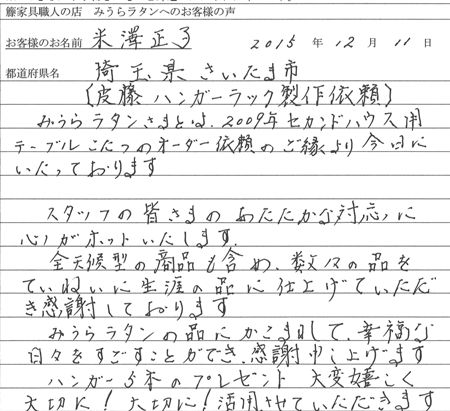 籐家具職人の店 みうらラタンへのお客様の声
お客様のお名前 米澤正子 2015 年 12 月 11 日
都道府県名 埼玉県さいたま市
〔皮籐ハンガーラック製作依頼〕
みうらラタンさまとは、2009年セカンドハウス用
テーブルこたつのオーダー依頼のご縁より今日に
いたっております
スタッフの皆さまのあたたかな対応に
心がホットいたします。
全天候型の商品も含め、数々の品を
ていねいに生涯の品に仕上げていただ
き感謝しております
みうらラタンの品にかこまれて、幸福な
日々をすごすことができ、感謝申し上げます
ハンガー5本のプレゼント 大変嬉しく
大切に!大切に!活用させていただきます